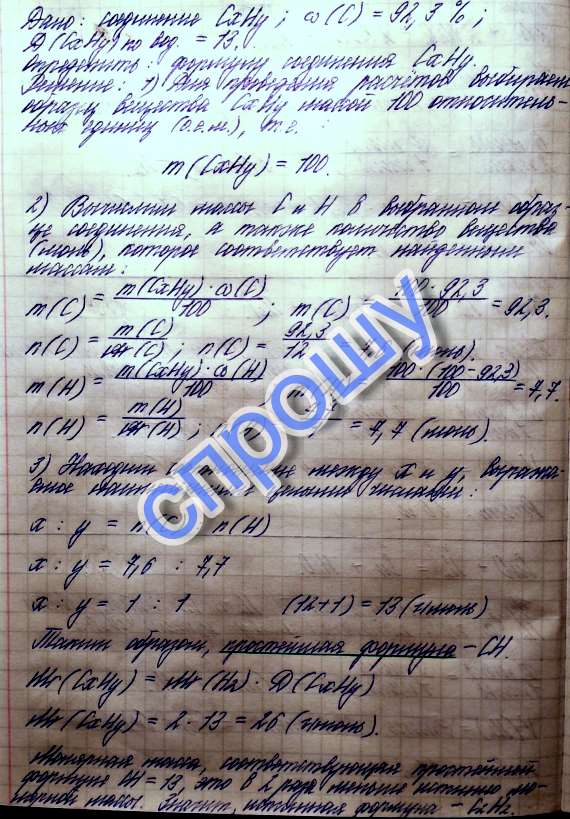 Дано: соединение CxHy; ω(C) = 92,3%;
D(CxHy) по вод. = 13.
Определить: формулу соединения CxHy.
Решение: 1) Для проведения расчётов выбираем
образец вещества CxHy массой 100 относитель-
ных единиц (о.е.м.), т.е. :
m(CxHy) = 100.
2) Вычислим массы C и H в выбранном образ-
це соединения, а также количество вещества
(моль), которое соответствует найденным
массам:
m(C) = m(CxHy)·ω(C) / 100 ; m(C) = 100·92,3 / 100 = 92,3.
n(C) = m(C) / M(C) ; n(C) = 92,3 / 12 = (моль).
m(H) = m(CxHy)·ω(H) / 100 100·(100-92,3) / 100 = 7,7.
n(H) = m(H) / M(H) ; = 7,7 (моль).
3) Находим между x и y, выража-
x : y = n n(H)
x : y = 7,6 : 7,7
x : y = 1 : 1 (12+1) = 13 (г/моль)
Таким образом, простейшая формула - CH.
Mr(CxHy) = Mr(H2)·D(CxHy)
Mr(CxHy) = 2·13 = 26 (г/моль).
Молярная масса, соответствующая простейшей
формуле CH = 13, это в 2 раза меньше истинно мо-
лярной массы. Значит, истинная формула - C2H2.
спрошу